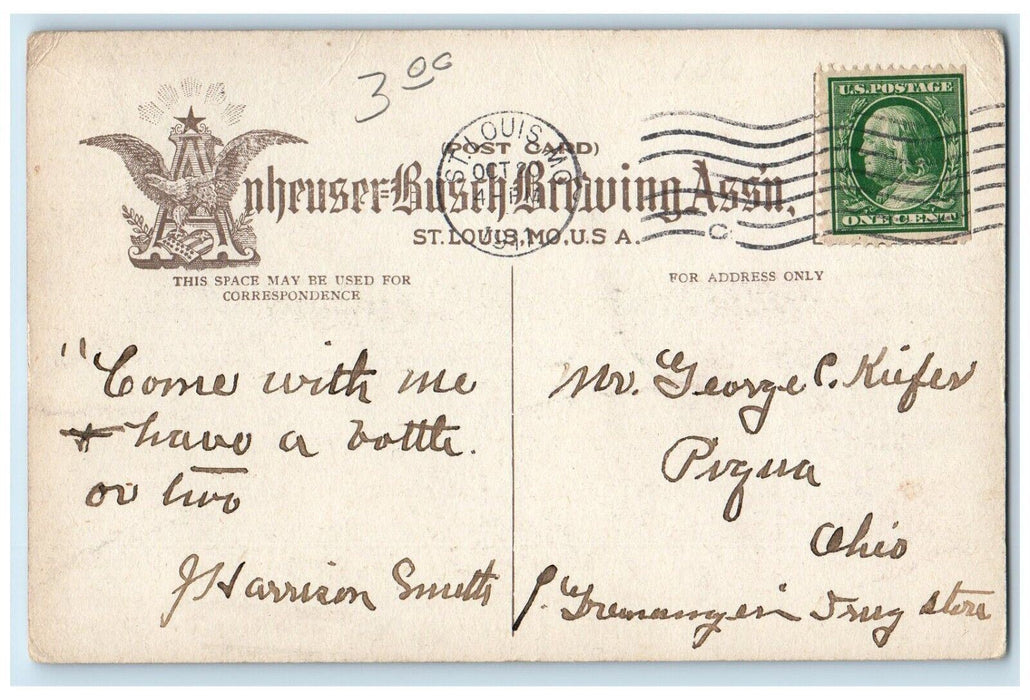 3 00
U.S. POSTAGE
ONE CENT
ST. LOUIS, MO.
OCT 2
(POST CARD)
Anheuser-Busch Brewing Ass'n.
ST. LOUIS, MO, U.S A.
C
THIS SPACE MAY BE USED FOR
CORRESPONDENCE
"Come with me
+ have a bottle.
or two
J Harrison Smith
FOR ADDRESS ONLY
Mr. George C. Kiefer
Piqua
Ohio
Drug store